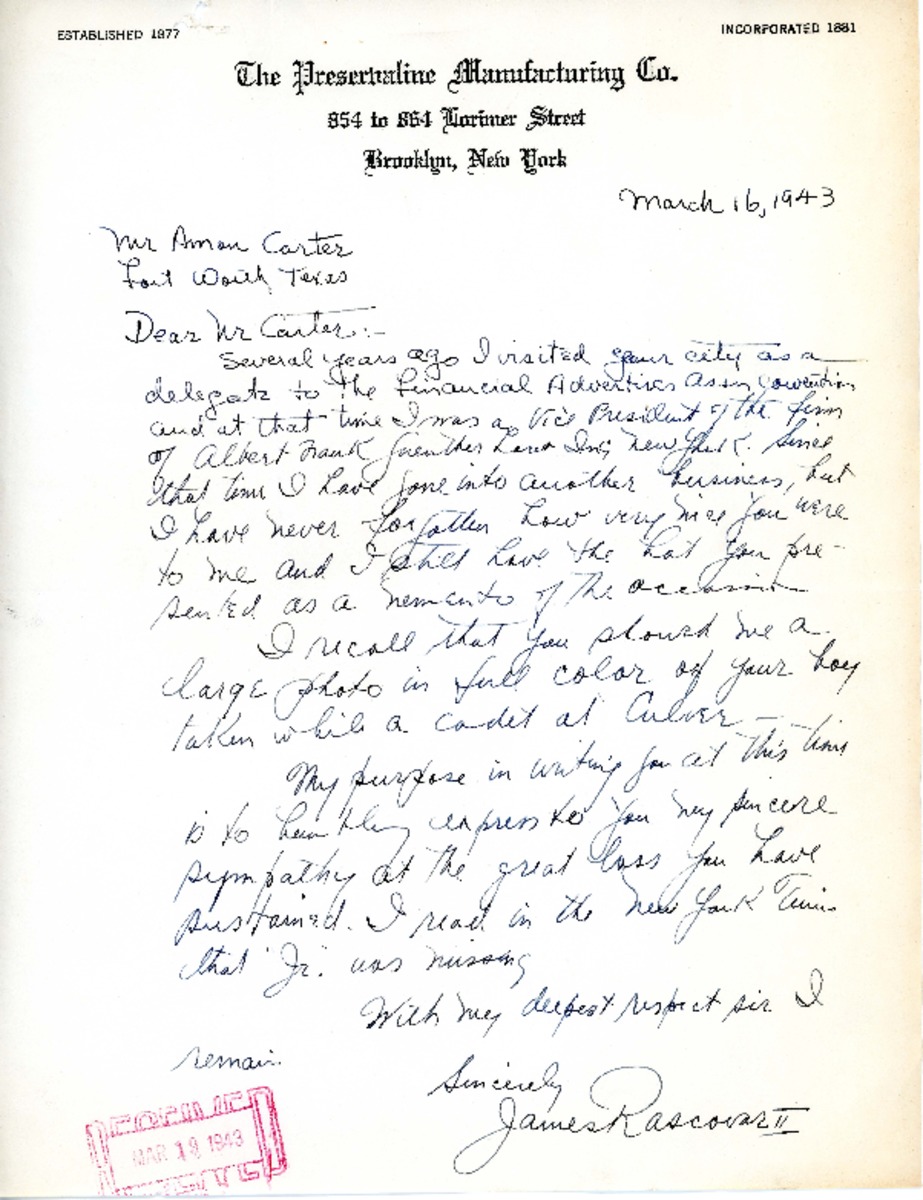 ESTABLISHED 1877
INCORPORATED 1881
The Preservaline Manufacturing Co.
854 to 864 Lorimer Street
Brooklyn, New York
March 16, 1943
Mr Amon Carter
Fort Worth Texas
Dear Mr Carter:-
Several years ago I visited your city as a
delegate to the Financial Advertisers Assn convention
and at that time I was a Vice President of the firm
of Albert Frank Guenther Law Inc, New York. Since
that time I have gone into another business, but
I have never forgotten how very nice you were
to me and I still have the hat you pre-
sented as a memento of the occasion
I recall that you showed me a
large photo in full color of your boy
taken while a cadet at Culver -
My purpose in writing you at this time
is to humbly express to you my sincere
sympathy at the great loss you have
sustained. I read in the New York Times
that Jr. was missing
With my deepest respect sir I
remain.
Sincerely
James Rascovar II
MAR 19 1943